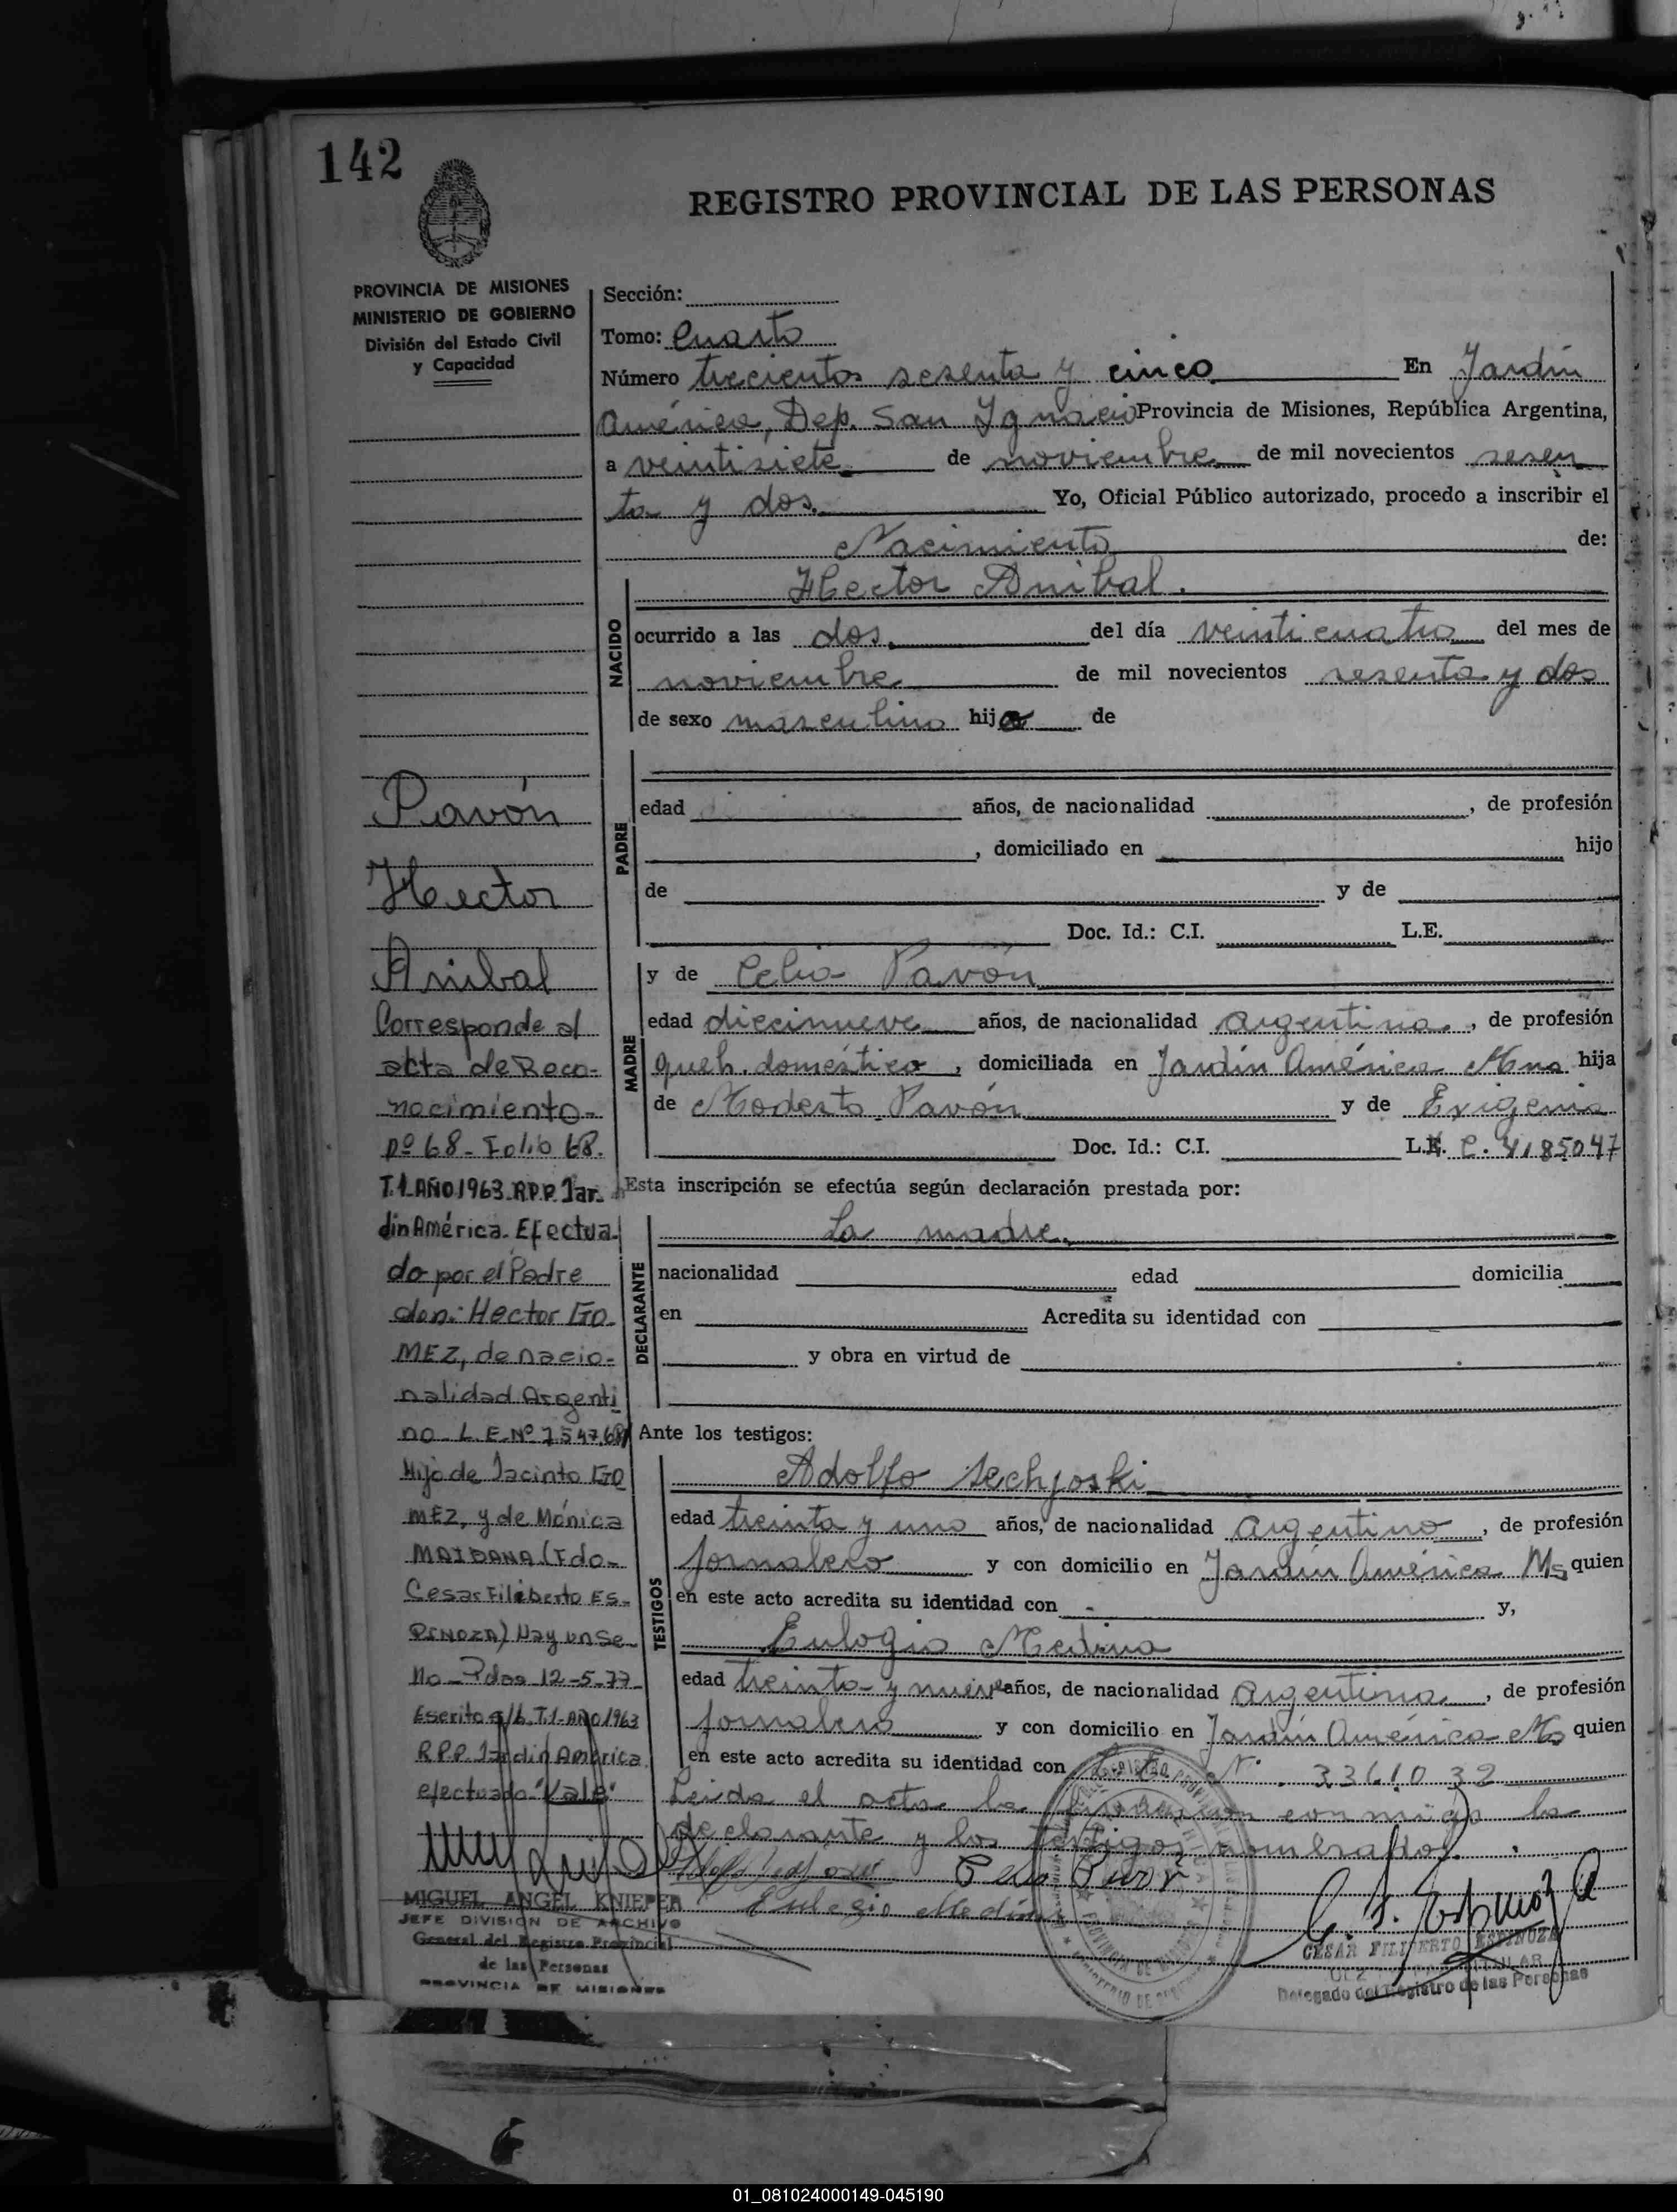 142
REGISTRO PROVINCIAL DE LAS PERSONAS
PROVINCIA DE MISIONES
MINISTERIO DE GOBIERNO
División del Estado Civil
y Capacidad
Sección:
Tomo: Cuarto
Número trecientos sesenta y cinco En Jardín
América, Dep. San Ignacio Provincia de Misiones, República Argentina,
a veintisiete de noviembre de mil novecientos sesen
ta y dos. Yo, Oficial Público autorizado, procedo a inscribir el
Nacimiento de:
NACIDO
Hector Anibal.
ocurrido a las dos. del día veinticuatro del mes de
noviembre de mil novecientos sesenta y dos
de sexo masculino hijo de
PADRE
edad años, de nacionalidad , de profesión
, domiciliado en hijo
de y de
Doc. Id.: C.I. L.E.
MADRE
y de Celia Pavón
edad diecinueve años, de nacionalidad argentina, de profesión
queh. doméstico, domiciliada en Jardín América Mns hija
de Modesto Pavón y de Exigenia
Doc. Id.: C.I. L. C. 4185047
Esta inscripción se efectúa según declaración prestada por:
DECLARANTE
La madre.
nacionalidad edad domicilia
en Acredita su identidad con
y obra en virtud de
Ante los testigos:
TESTIGOS
Adolfo
edad treinta y uno años, de nacionalidad argentino, de profesión
jornalero y con domicilio en Jardín América Ms quien
en este acto acredita su identidad con - y,
Eulogio Medina
edad treinta y nueve años, de nacionalidad argentina, de profesión
jornalero y con domicilio en Jardín América Ms quien
en este acto acredita su identidad con N°. 3361032
Leida el acta la firmaron conmigo la
declarante y los testigos nombrados.
Eulogio Medina
Pavón
Hector
Anibal
Corresponde al
acta de Reco-
nocimiento-
nº 68- Folio 68.
T.1-AÑO 1963-R.P.P. Jar-
din América. Efectua-
do por el Padre
don: Hector GO-
MEZ, de nacio-
nalidad Argenti
no- L.E. Nº
Hijo de Jacinto GO
MEZ, y de Mónica
MAIDANA (Fdo-
Cesar Filiberto ES-
PINOZA) Hay un Se-
llo- Pdas 12-5-77
Escrito s/b. T.1-AÑO 1963
R.P.P. Jardin América
efectuado "Vale"
MIGUEL ANGEL KNIEPER
JEFE DIVISION DE ARCHIVO
General del Registro Provincial
de las Personas
PROVINCIA DE MISIONES
C. F. Espinoza
CESAR FILIBERTO ESPINOZA
JUEZ DE PAZ TITULAR
Delegado del Registro de las Personas
01_081024000149-045190